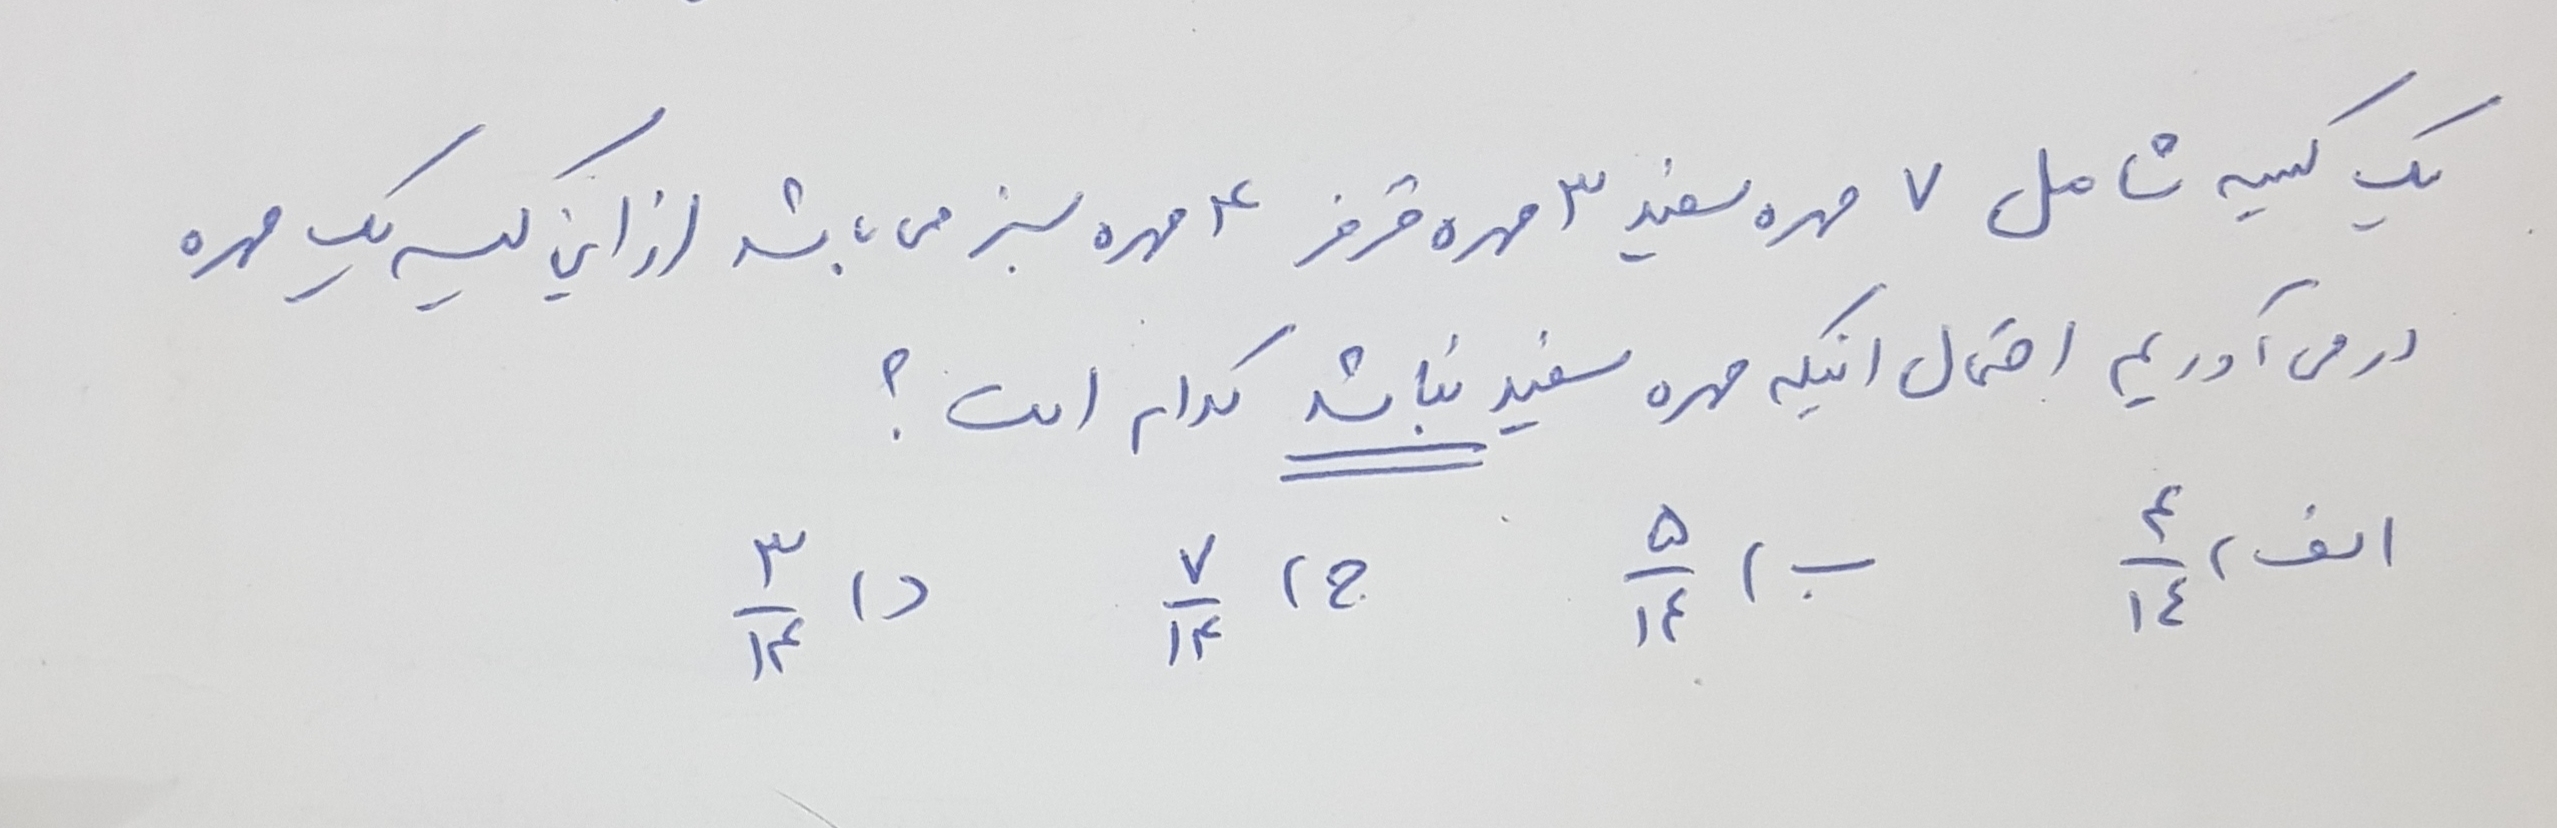 یک کیسه شامل ۷ مهره سفید ۳ مهره قرمز ۴ مهره سبز می باشد از این کیسه یک مهره
در می آوریم احتمال اینکه مهره سفید نباشد کدام است ؟
الف) ۴/۱۴ ب) ۵/۱۴ ج) ۷/۱۴ د) ۳/۱۴